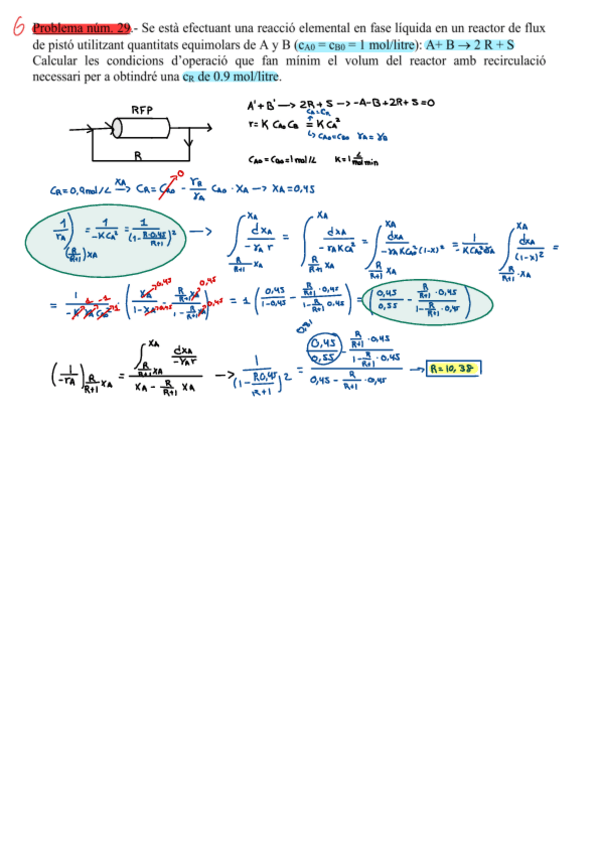 6 Problema núm. 29.- Se està efectuant una reacció elemental en fase líquida en un reactor de flux
de pistó utilitzant quantitats equimolars de A y B (cA0 = cB0 = 1 mol/litre): A+ B → 2 R + S
Calcular les condicions d'operació que fan mínim el volum del reactor amb recirculació
necessari per a obtindré una cR de 0.9 mol/litre.
RFP
R
A'+B' → 2R+S → -A-B+2R+S=0
CA=CB
r = K CA CB = K CA²
↳ CA0=CB0 rA = rB
CA0 = CB0 = 1 mol/L K=1 L/mol min
CR=0,9 mol/L XA→ CA=CA0 0 - rR/rA CA0 · XA → XA=0,45
1/rA) (R/R+1)XA = 1/-KCA² = 1/(1-R·0,45/R+1)² → ∫ XA R/R+1 XA dXA/-rA r = ∫ XA R/R+1 XA dXA/-rA KCA² = ∫ XA R/R+1 XA dXA/-rA KCA0²(1-X)² = 1/-KCA0²rA ∫ XA R/R+1·XA dXA/(1-X)² =
= 1/-K rA CA0² 1 -1 -1 · (XA/1-XA - R/R+1 XA/1-R/R+1 XA) 0,45 0,45 0,45 0,45 = 1 (0,45/1-0,45 - R/R+1·0,45/1-R/R+1 0,45) = (0,45/0,55 - R/R+1·0,45/1-R/R+1·0,45)
(1/-rA) R/R+1 XA = ∫ XA R/R+1 XA dXA/-rA r / XA - R/R+1 XA → 1/(1-R0,45/R+1)² = 0,45/0,55 - R/R+1·0,45/1-R/R+1·0,45 / 0,45 - R/R+1·0,45 → R=10,38